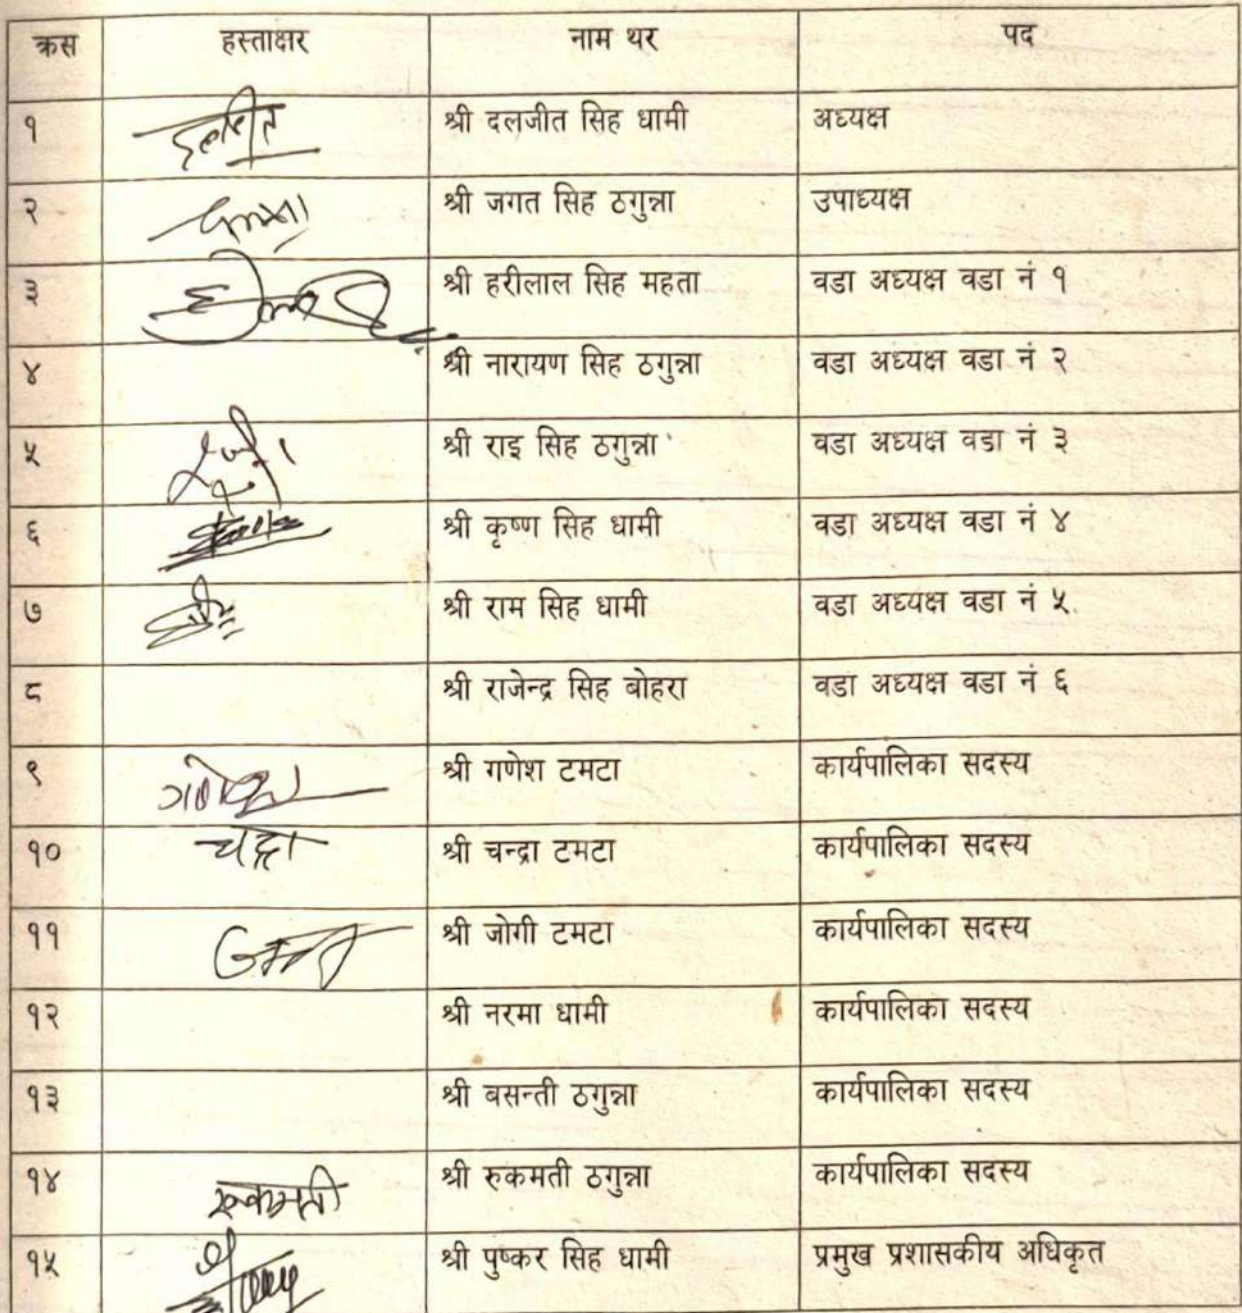 क्रस हस्ताक्षर नाम थर पद
१ दलजित श्री दलजीत सिह धामी अध्यक्ष
२ श्री जगत सिह ठगुन्ना उपाध्यक्ष
३ श्री हरीलाल सिह महता वडा अध्यक्ष वडा नं १
४ श्री नारायण सिह ठगुन्ना वडा अध्यक्ष वडा नं २
५ श्री राइ सिह ठगुन्ना वडा अध्यक्ष वडा नं ३
६ श्री कृष्ण सिह धामी वडा अध्यक्ष वडा नं ४
७ श्री राम सिह धामी वडा अध्यक्ष वडा नं ५
८ श्री राजेन्द्र सिह बोहरा वडा अध्यक्ष वडा नं ६
९ गणेश श्री गणेश टमटा कार्यपालिका सदस्य
१० चन्द्रा श्री चन्द्रा टमटा कार्यपालिका सदस्य
११ श्री जोगी टमटा कार्यपालिका सदस्य
१२ श्री नरमा धामी कार्यपालिका सदस्य
१३ श्री बसन्ती ठगुन्ना कार्यपालिका सदस्य
१४ रुकमती श्री रुकमती ठगुन्ना कार्यपालिका सदस्य
१५ श्री पुष्कर सिह धामी प्रमुख प्रशासकीय अधिकृत